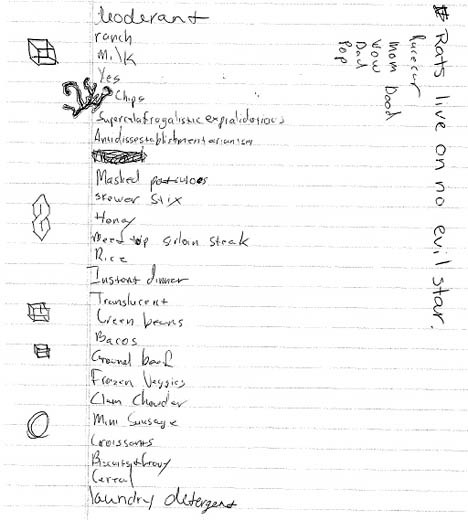 Deoderant
ranch
Milk
Yes
Chips
Supercalafragalistic expialidotious
Antidissestablishmentarianism
Masked
skewer stix
Honey
sirloin steak
Rice
Instant dinner
Translucent
Green beans
Bacos
Ground
Frozen Veggies
Clam Chowder
Mini Sausage
Croissants
Cereal
laundry detergent
Racecar
Mom Dood
Wow
Dad
Pop
Rats live on no evil star.